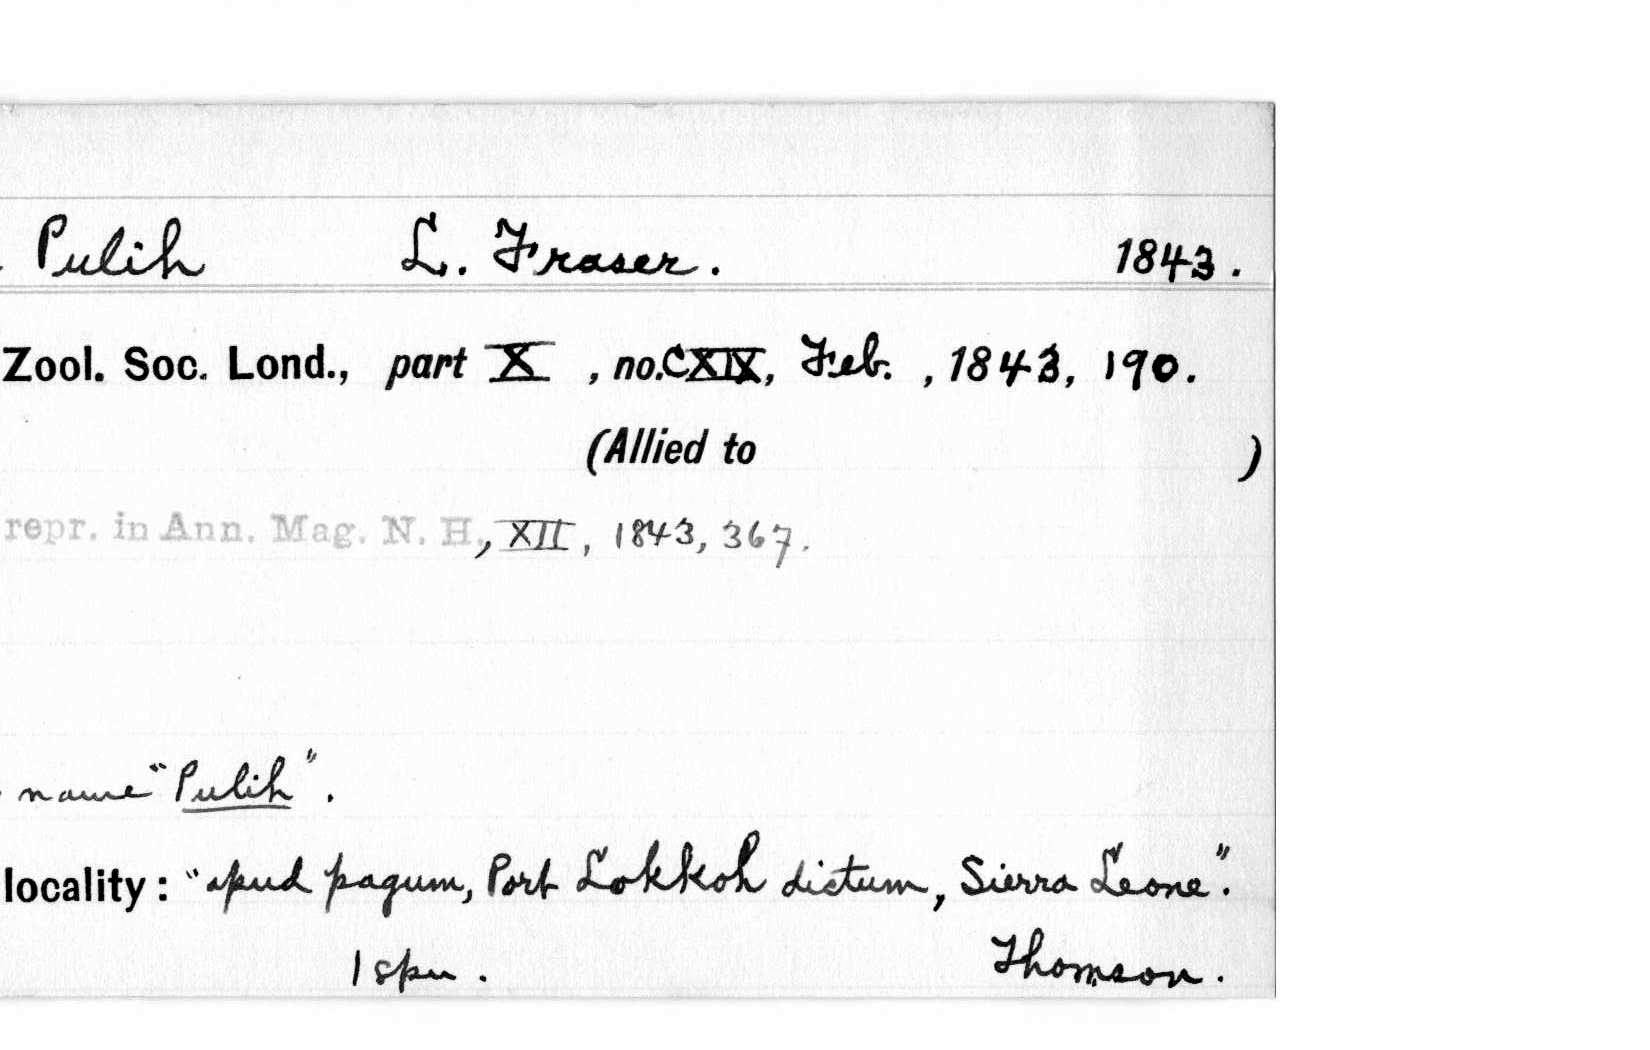 Pulih L. Fraser. 1843.
Zool. Soc. Lond., part X, no. CXIX, Feb., 1843, 190.
(Allied to )
repr. in Ann. Mag. N. H., XII, 1843, 367.
name "Pulih".
locality: "apud pagum, Port Lokkoh dictum, Sierra Leone".
1 spn. Thomson.